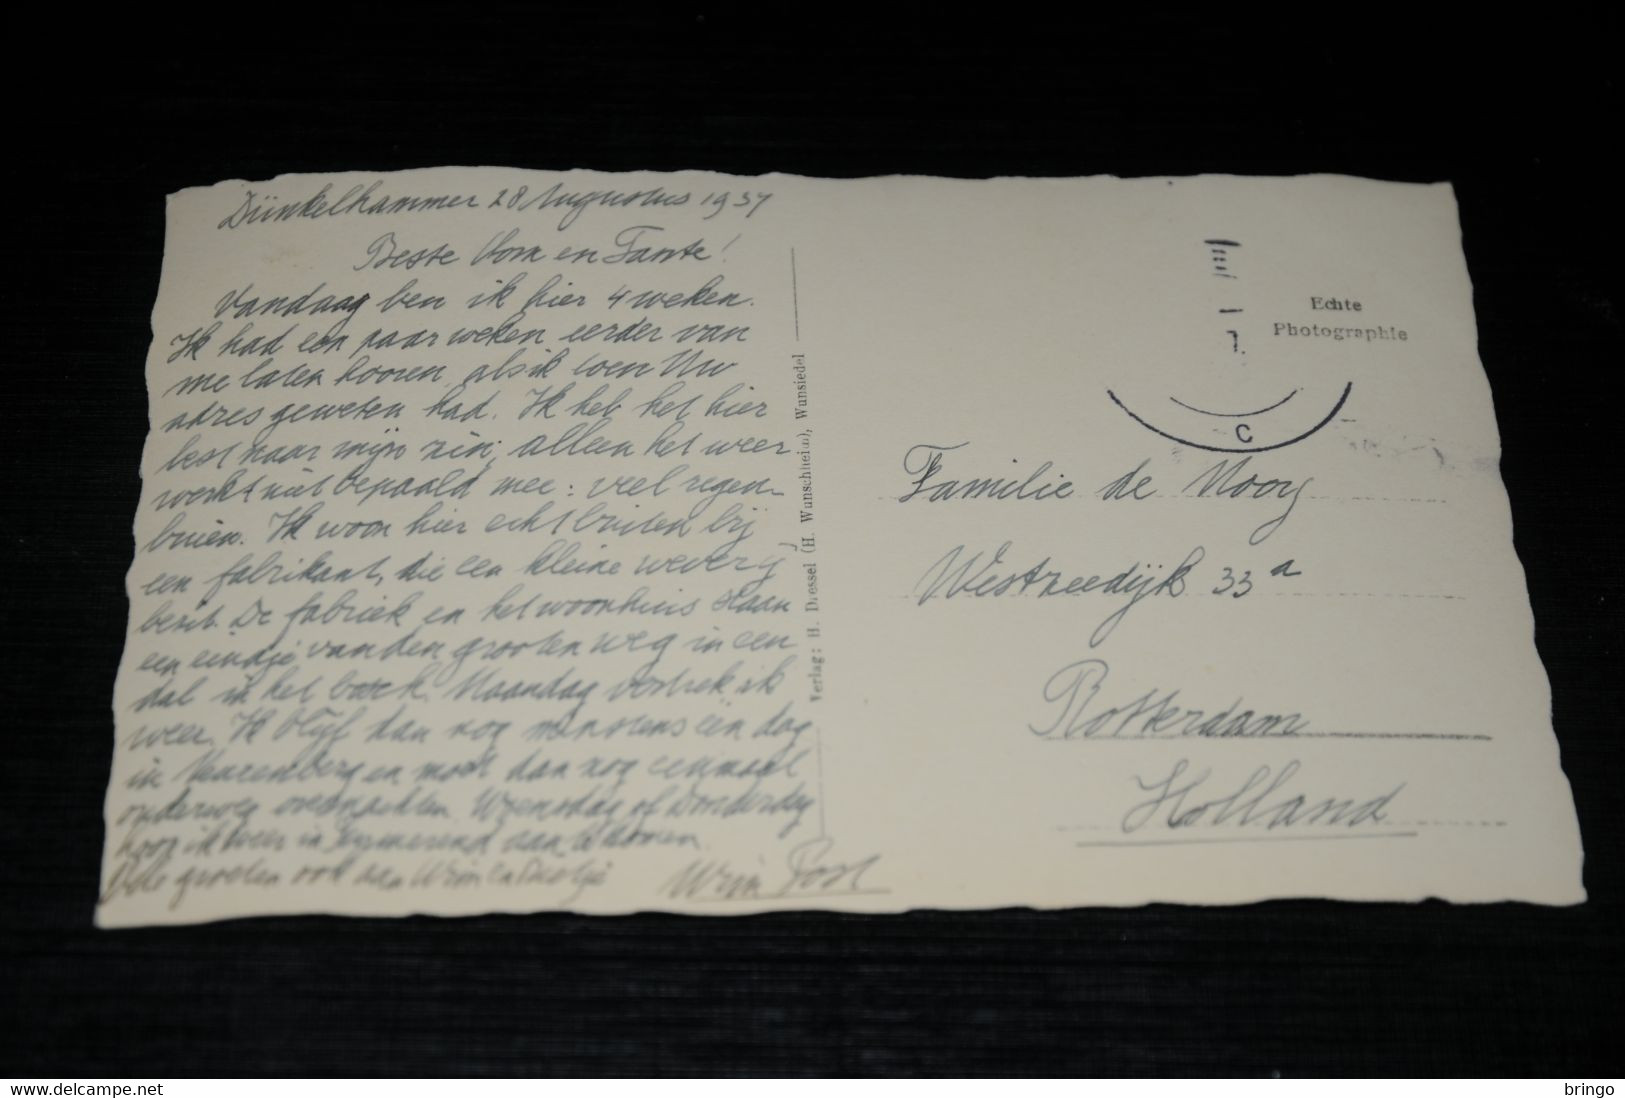 Dünkelhammer 28 Augustus 1937
Beste Oom en Tante!
Vandaag ben ik hier 4 weken.
Ik had een paar weken eerder van
me laten hooren, als ik toen Uw
adres geweten had. Ik heb het hier
best naar mijn zin, alleen het weer
werkt niet bepaald mee: veel regen-
buien. Ik woon hier echt buiten bij
een fabrikant, die een kleine weverij
bezit. De fabriek en het woonhuis staan
een eindje van den grooten weg in een
dal in het bosch. Maandag vertrek ik
weer. Ik blijf dan nog minstens een dag
in Neurenberg en moet dan nog eenmaal
onderweg overnachten. Woensdag of Donderdag
hoop ik weer in Purmerend aan te komen.
Vele groeten ook aan Wim en
Wim Post
Verlag: H. Dressel (H. Wunschheim), Wunsiedel
Echte
Photographie
C
Familie de Mooy
Westzeedijk 33a
Rotterdam
Holland
Delcampe.net
bringo